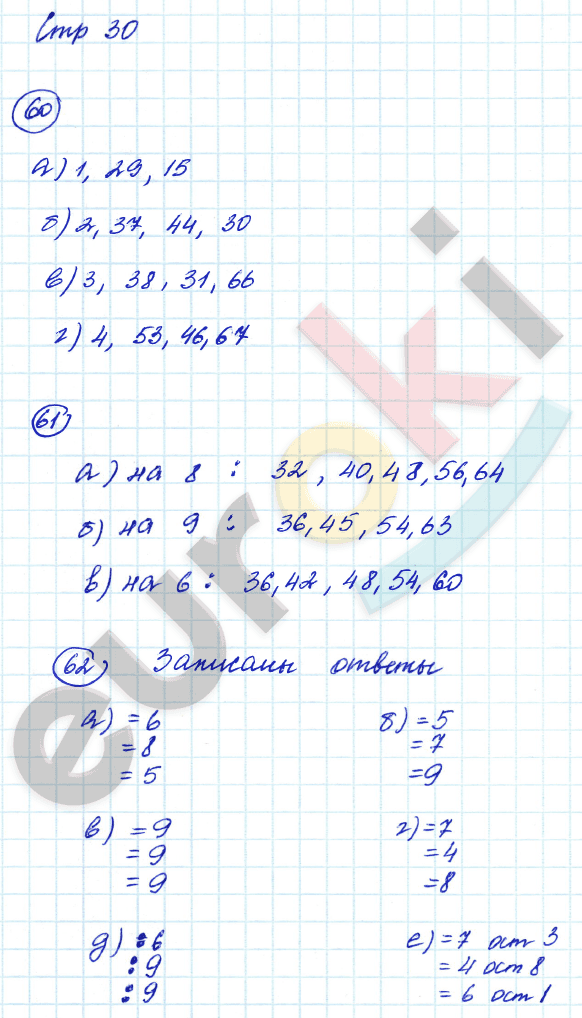 Стр 30
60
а) 1, 29, 15
б) 2, 37, 44, 30
в) 3, 38, 31, 66
г) 4, 53, 46, 67
61)
а) на 8 : 32, 40, 48, 56, 64
б) на 9 : 36, 45, 54, 63
в) на 6 : 36, 42, 48, 54, 60
62) Записаны ответы
а) = 6
= 8
= 5
б) = 5
= 7
= 9
в) = 9
= 9
= 9
г) = 7
= 4
= 8
д) = 6
: 9
: 9
е) = 7 ост 3
= 4 ост 8
= 6 ост 1
euroki